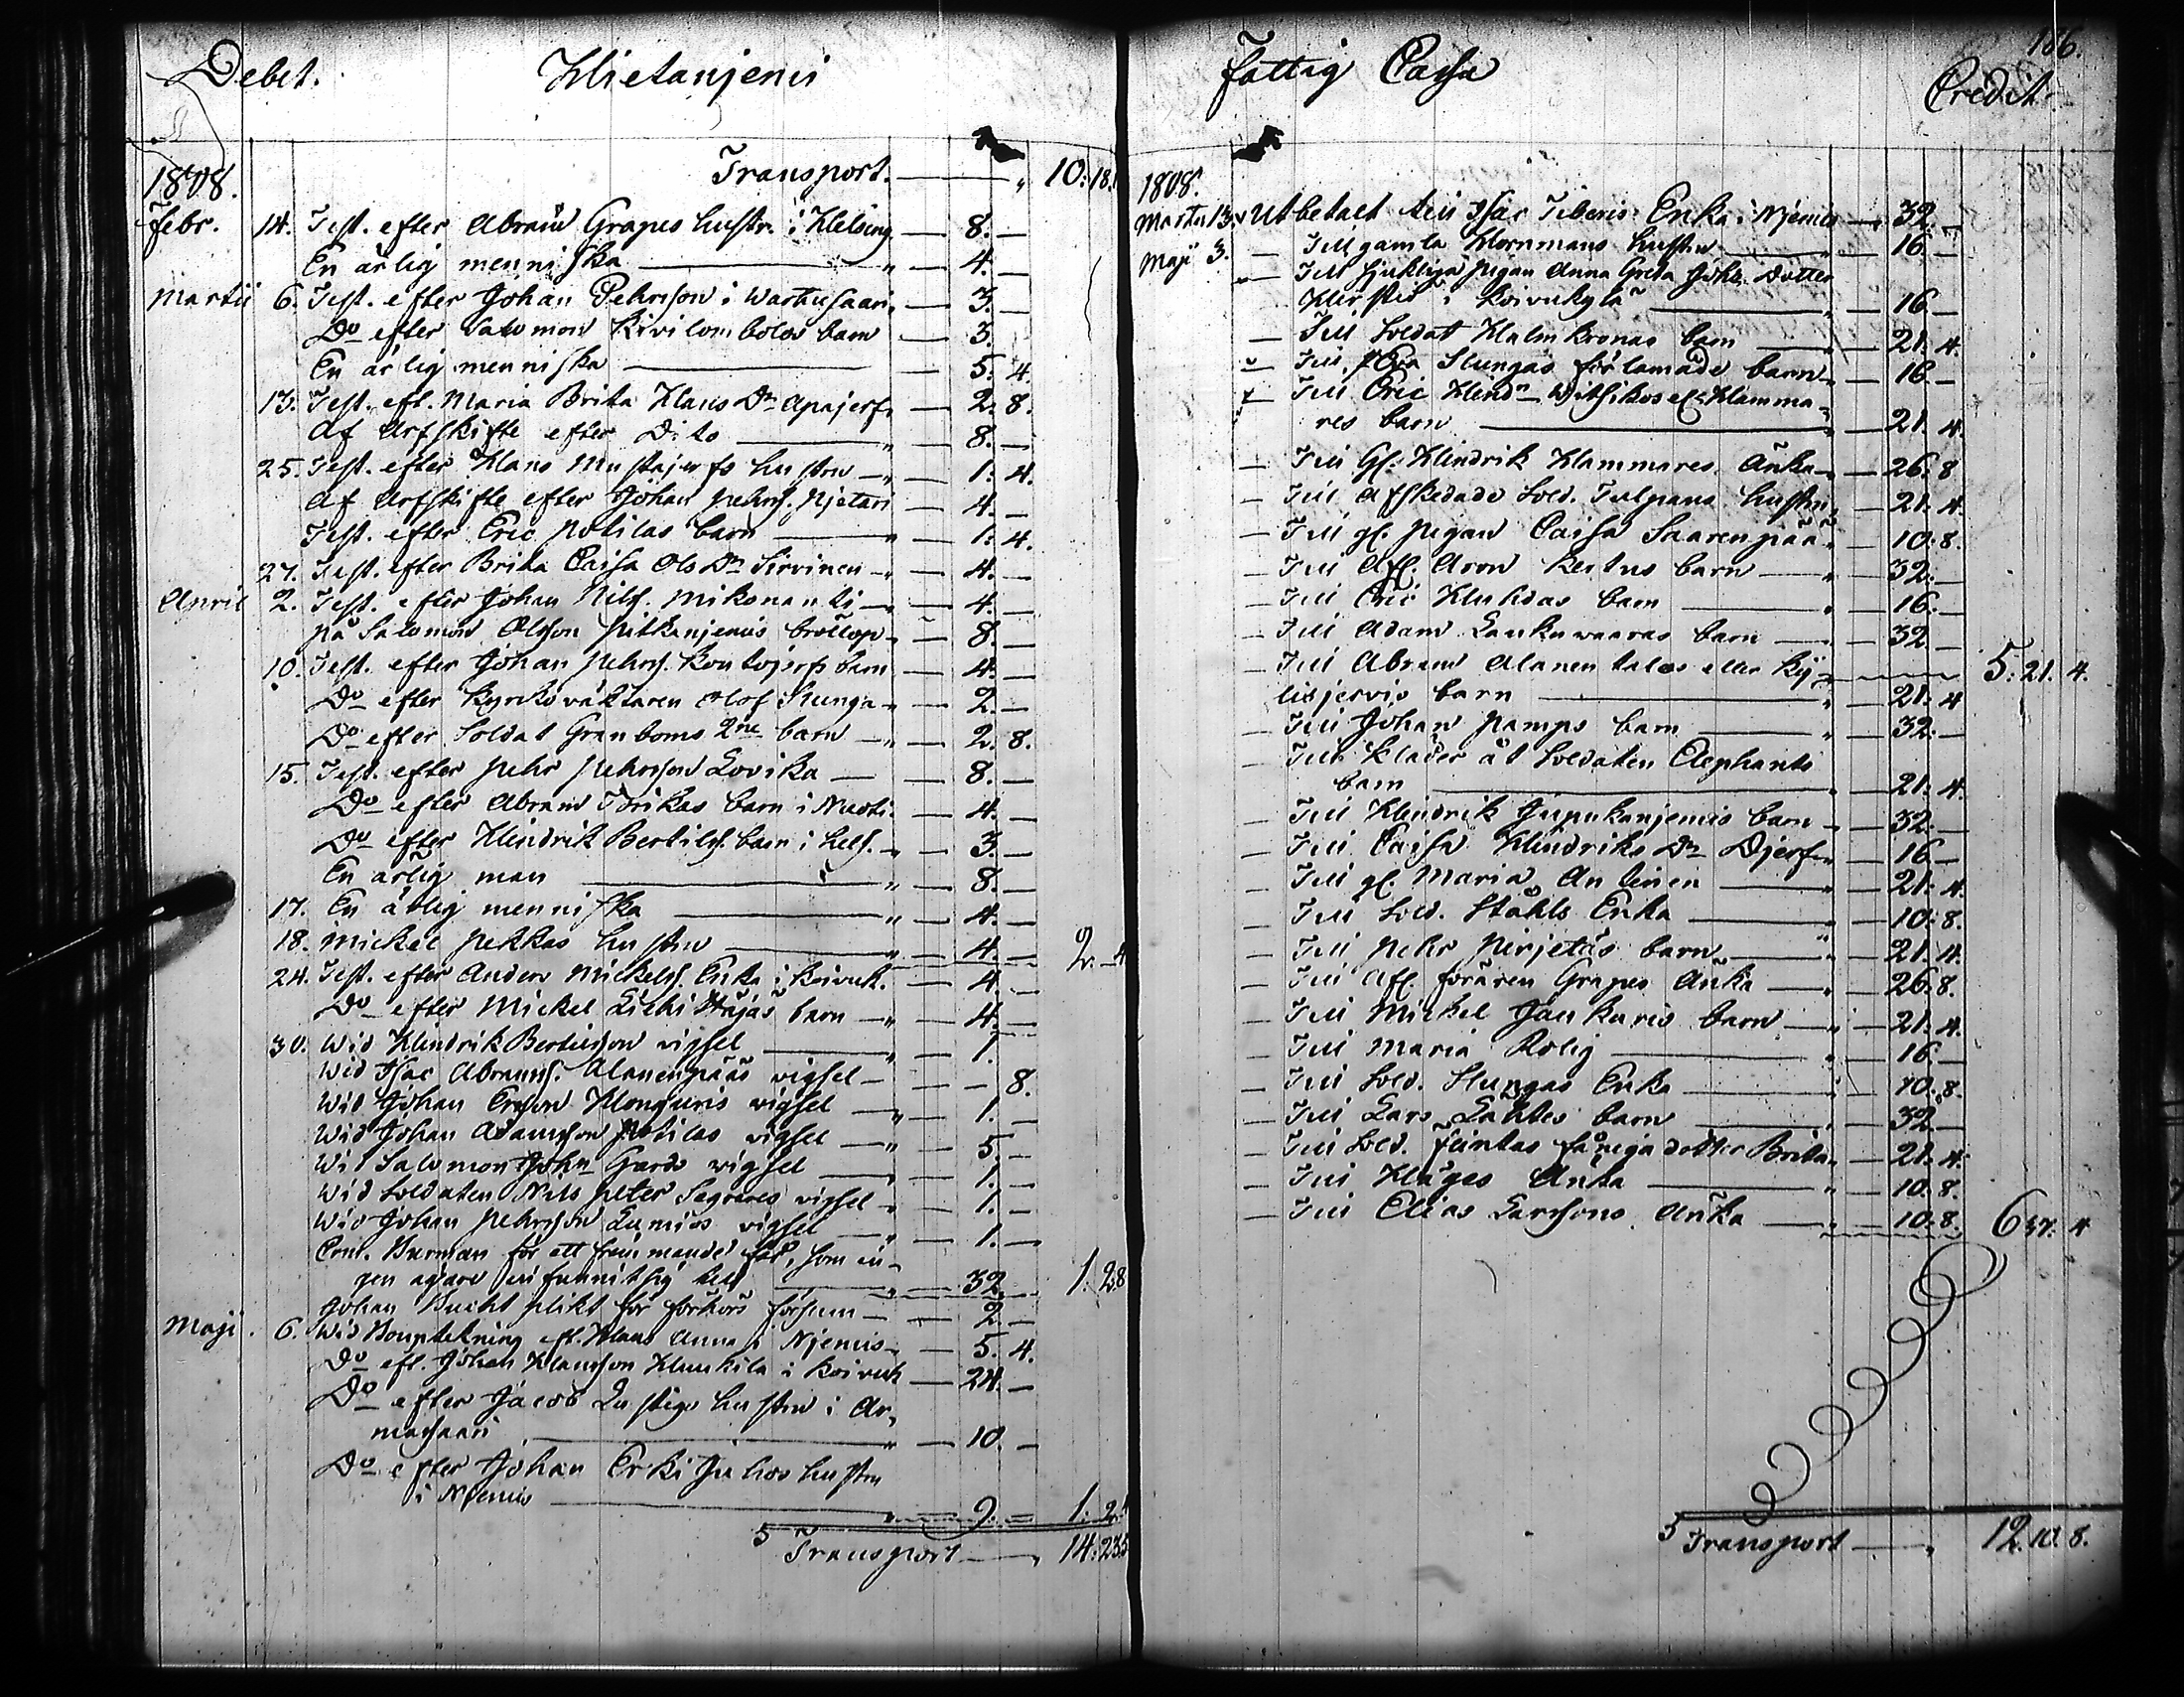 Debet. Hietanjemi
1808. Transport. 10: 18.
Febr. 14. Test. efter Abram Grapes hustr. i Helsing. 8.
En ärlig menniska 4.
Martii 6. Test. efter Johan Pehrsson i Wartusaari 3.
Do efter Salomon Kivilombolos barn 3.
En ärlig menniska 5. 4.
13. Test. eft. Maria Brita Hans Dr Apajerf 2. 8.
Af Arfskifte efter Dito 8.
25. Test. efter Hans Mustajerfs hustru 1. 4.
Af Arfskifte efter Johan Pehrs. Pjetari 4.
Test. efter Eric Potilas barn 1. 4.
27. Test. efter Brita Caisa Ols Dr Sirvinen 4.
April 2. Test. efter Johan Nils. Mikonanti 4.
på Salomon Olsson Pitkänjemis bröllop 8.
10. Test. efter Johan Pehrs. Kontojerfs barn 4.
Do efter Kyrkoväktaren Olof Stunga 2.
Do efter Soldat Granboms 2ne barn 2. 8.
15. Test. efter Pehr Pehrsson Lovika 8.
Do efter Abram barn i 4.
Do efter Hindrik Bertils. barn i Hels. 3.
En ärlig man 8.
17. En ärlig menniska 4.
18. Mickel Pekkas hustru 4. 2. 4
24. Test. efter Anders Mickels. Enka i Koivuk. 4.
Do efter Mickel barn 4.
30. Wid Hindrik Bertilsson vigsel 1.
Wid Isac Abrams. Alanenpääs vigsel 8.
Wid Johan Ersson vigsel 1.
Wid Johan Adamsson Potilas vigsel 5.
Wid Salomon John Gards vigsel 1.
Wid Soldaten Nils Peter vigsel 1.
Wid Johan Pehrsson vigsel 1.
Burman för ett främmande får, som in-
gen ägare 32. 1. 28
Johan Bucht plikt för förhörs försum 2.
Maji 6. Wid Boupptekning eft. Hans Anna i Njemis 5. 4.
Do eft. Johan Hansson i Koivuk 24.
Do efter Jacob Lustigs hustru i Ar-
masaari 10.
Do efter Johan Erki Juhos hustru
i Njemis 9. 1: 2.
5 Transport 14: 23.
Fattig Cassa 186.
Credit.
1808.
Martii 13. Utbetalt till Isac Tiberis Enka i Njemis 32.
Maji 3. Till gamla Hornmans hustru 16.
Till sjukliga pigan Anna Greta Johs. Dotter
i Koivukylä 16.
Till Soldat Malmkronas barn 21. 4.
Till Eva Stungas förlamade barn 16.
Till Eric Hindn eft. Hamma-
res barn 21. 4.
Till Gl. Hindrik Hammares Änka 26. 8
Till Afskedade Sold. Tulpans hustru 21. 4.
Till gl. pigan Caisa Saarenpää 10. 8.
Till Afl. Aron Kertus barn 32.
Till Eric Huhdas barn 16.
Till Adam Lankuwaaras barn 32
Till Abram Alanentalos eller Ky- 5. 21. 4.
lisjervis barn 21. 4
Till Johan Pamps barn 32.
Till kläder åt Soldaten Elephants
barn 21. 4.
Till Hindrik Jupukanjemis barn 32.
Till Caisa Hindriks Dr Djerf 16
Till gl. Maria Antinen 21. 4.
Till Sold. Ståhls Enka 10. 8.
Till Pehr Pirjetäs barn 21. 4.
Till Afl. förären Grapes Änka 26. 8.
Till Mickel Jankuris barn 21. 4.
Till Maria Rolig 16.
Till Sold. Stungas Enka 10. 8.
Till Lars Lahtes barn 32
Till Sold. Flintas fåniga dotter Brita 21. 4.
Till Häges Änka 10. 8.
Till Elias Larssons Änka 10. 8. 6 37. 4
5 Transport 12. 10. 8.